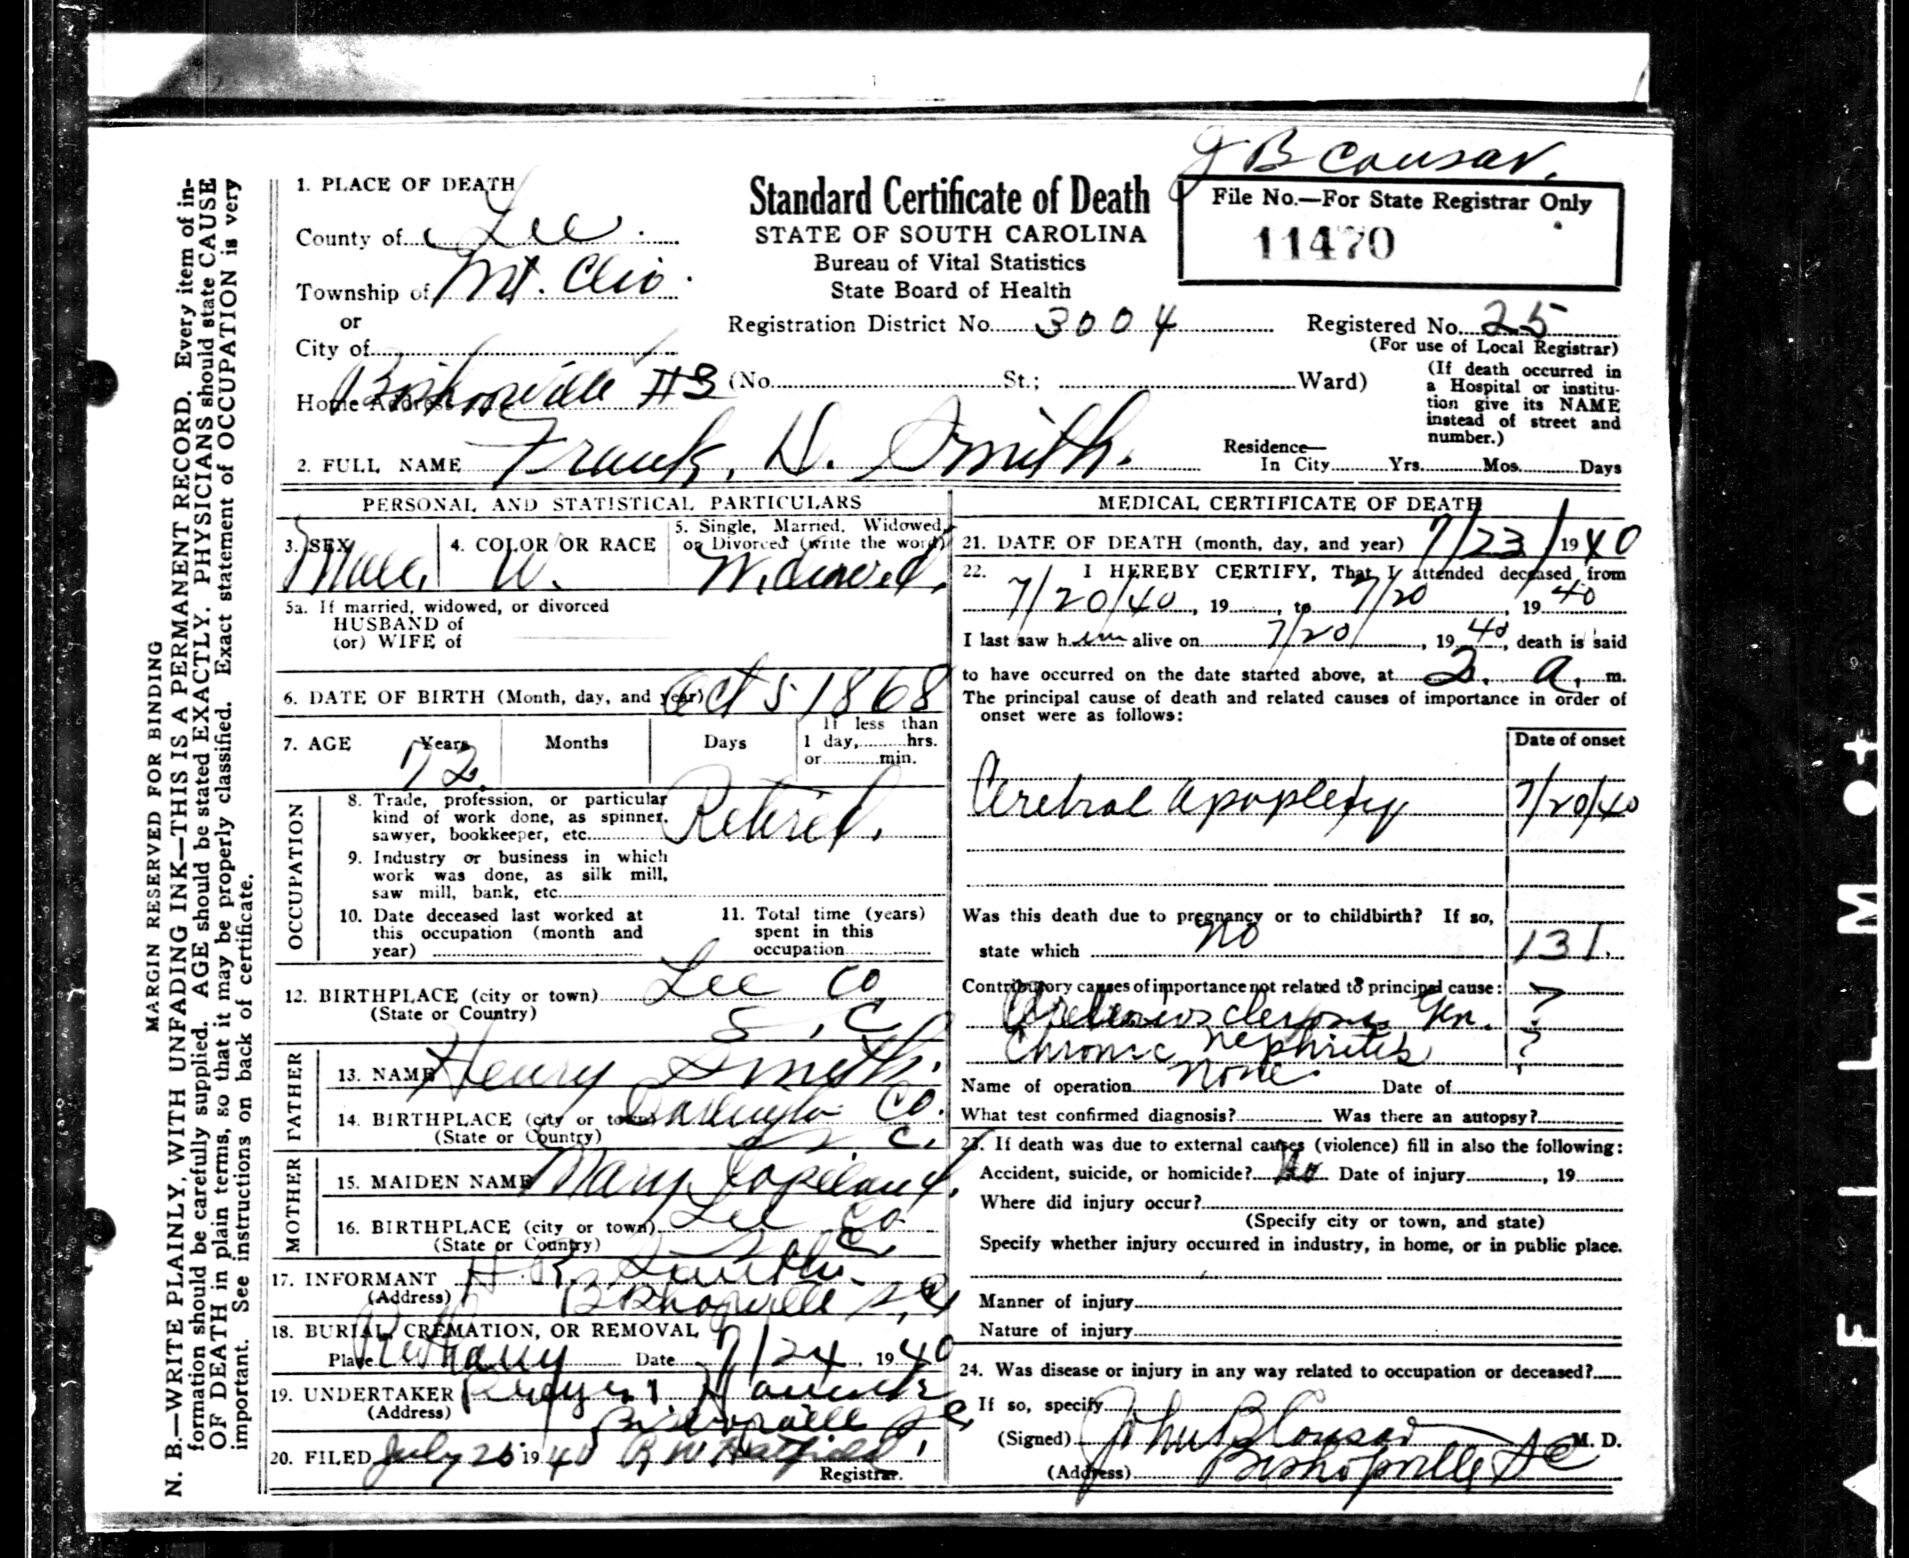 J B Cousar.
Standard Certificate of Death
STATE OF SOUTH CAROLINA
Bureau of Vital Statistics
State Board of Health
File No.—For State Registrar Only
11470
1. PLACE OF DEATH
County of Lee.
Township of Mt. Clio.
or
City of
Home Address Bishopville #3
Registration District No. 3004
Registered No. 25
(For use of Local Registrar)
(No. St.; Ward)
(If death occurred in
a Hospital or institu-
tion give its NAME
instead of street and
number.)
2. FULL NAME Frank. D. Smith.
Residence—
In City Yrs. Mos. Days
PERSONAL AND STATISTICAL PARTICULARS
3. SEX
Male.
4. COLOR OR RACE
W.
5. Single, Married, Widowed,
or Divorced (write the word)
Widowed.
5a. If married, widowed, or divorced
HUSBAND of
(or) WIFE of
6. DATE OF BIRTH (Month, day, and year) Oct 5 1868
7. AGE Years Months Days If less than
1 day, hrs.
or min.
72.
OCCUPATION
8. Trade, profession, or particular
kind of work done, as spinner,
sawyer, bookkeeper, etc. Retired.
9. Industry or business in which
work was done, as silk mill,
saw mill, bank, etc.
10. Date deceased last worked at
this occupation (month and
year)
11. Total time (years)
spent in this
occupation
12. BIRTHPLACE (city or town) Lee Co
(State or Country) S. C.
FATHER
13. NAME Henry Smith.
14. BIRTHPLACE (city or town) Darlington Co.
(State or Country) S C.
MOTHER
15. MAIDEN NAME Mary Copeland.
16. BIRTHPLACE (city or town) Lee Co
(State or Country) S C.
17. INFORMANT H. R. Smith.
(Address) Bishopville S.C.
18. BURIAL, CREMATION, OR REMOVAL
Place Bethany Date 7/24, 1940
19. UNDERTAKER
(Address) Bishopville S C
20. FILED July 26 1940 R W
Registrar.
MEDICAL CERTIFICATE OF DEATH
21. DATE OF DEATH (month, day, and year) 7/23/1940
22. I HEREBY CERTIFY, That I attended deceased from
7/20/40, 19 , to 7/20, 1940
I last saw him alive on 7/20, 1940, death is said
to have occurred on the date started above, at 2. a. m.
The principal cause of death and related causes of importance in order of
onset were as follows:
Date of onset
Cerebral apoplexy 7/20/40
Was this death due to pregnancy or to childbirth? If so,
state which no
131.
Contributory causes of importance not related to principal cause:
Arteriosclerosis Gen. ?
Chronic Nephritis ?
Name of operation None. Date of
What test confirmed diagnosis? Was there an autopsy?
23. If death was due to external causes (violence) fill in also the following:
Accident, suicide, or homicide? No Date of injury , 19
Where did injury occur?
(Specify city or town, and state)
Specify whether injury occurred in industry, in home, or in public place.
Manner of injury
Nature of injury
24. Was disease or injury in any way related to occupation or deceased?
If so, specify
(Signed) John B Cousar M. D.
(Address) Bishopville S C
MARGIN RESERVED FOR BINDING
N. B.—WRITE PLAINLY, WITH UNFADING INK—THIS IS A PERMANENT RECORD. Every item of in-
formation should be carefully supplied. AGE should be stated EXACTLY. PHYSICIANS should state CAUSE
OF DEATH in plain terms, so that it may be properly classified. Exact statement of OCCUPATION is very
important. See instructions on back of certificate.
FILM